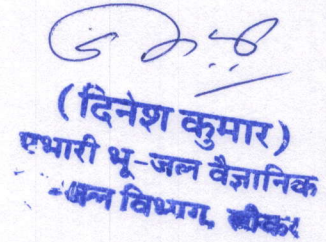 (दिनेश कुमार)
प्रभारी भू-जल वैज्ञानिक
जल विभाग, सीकर